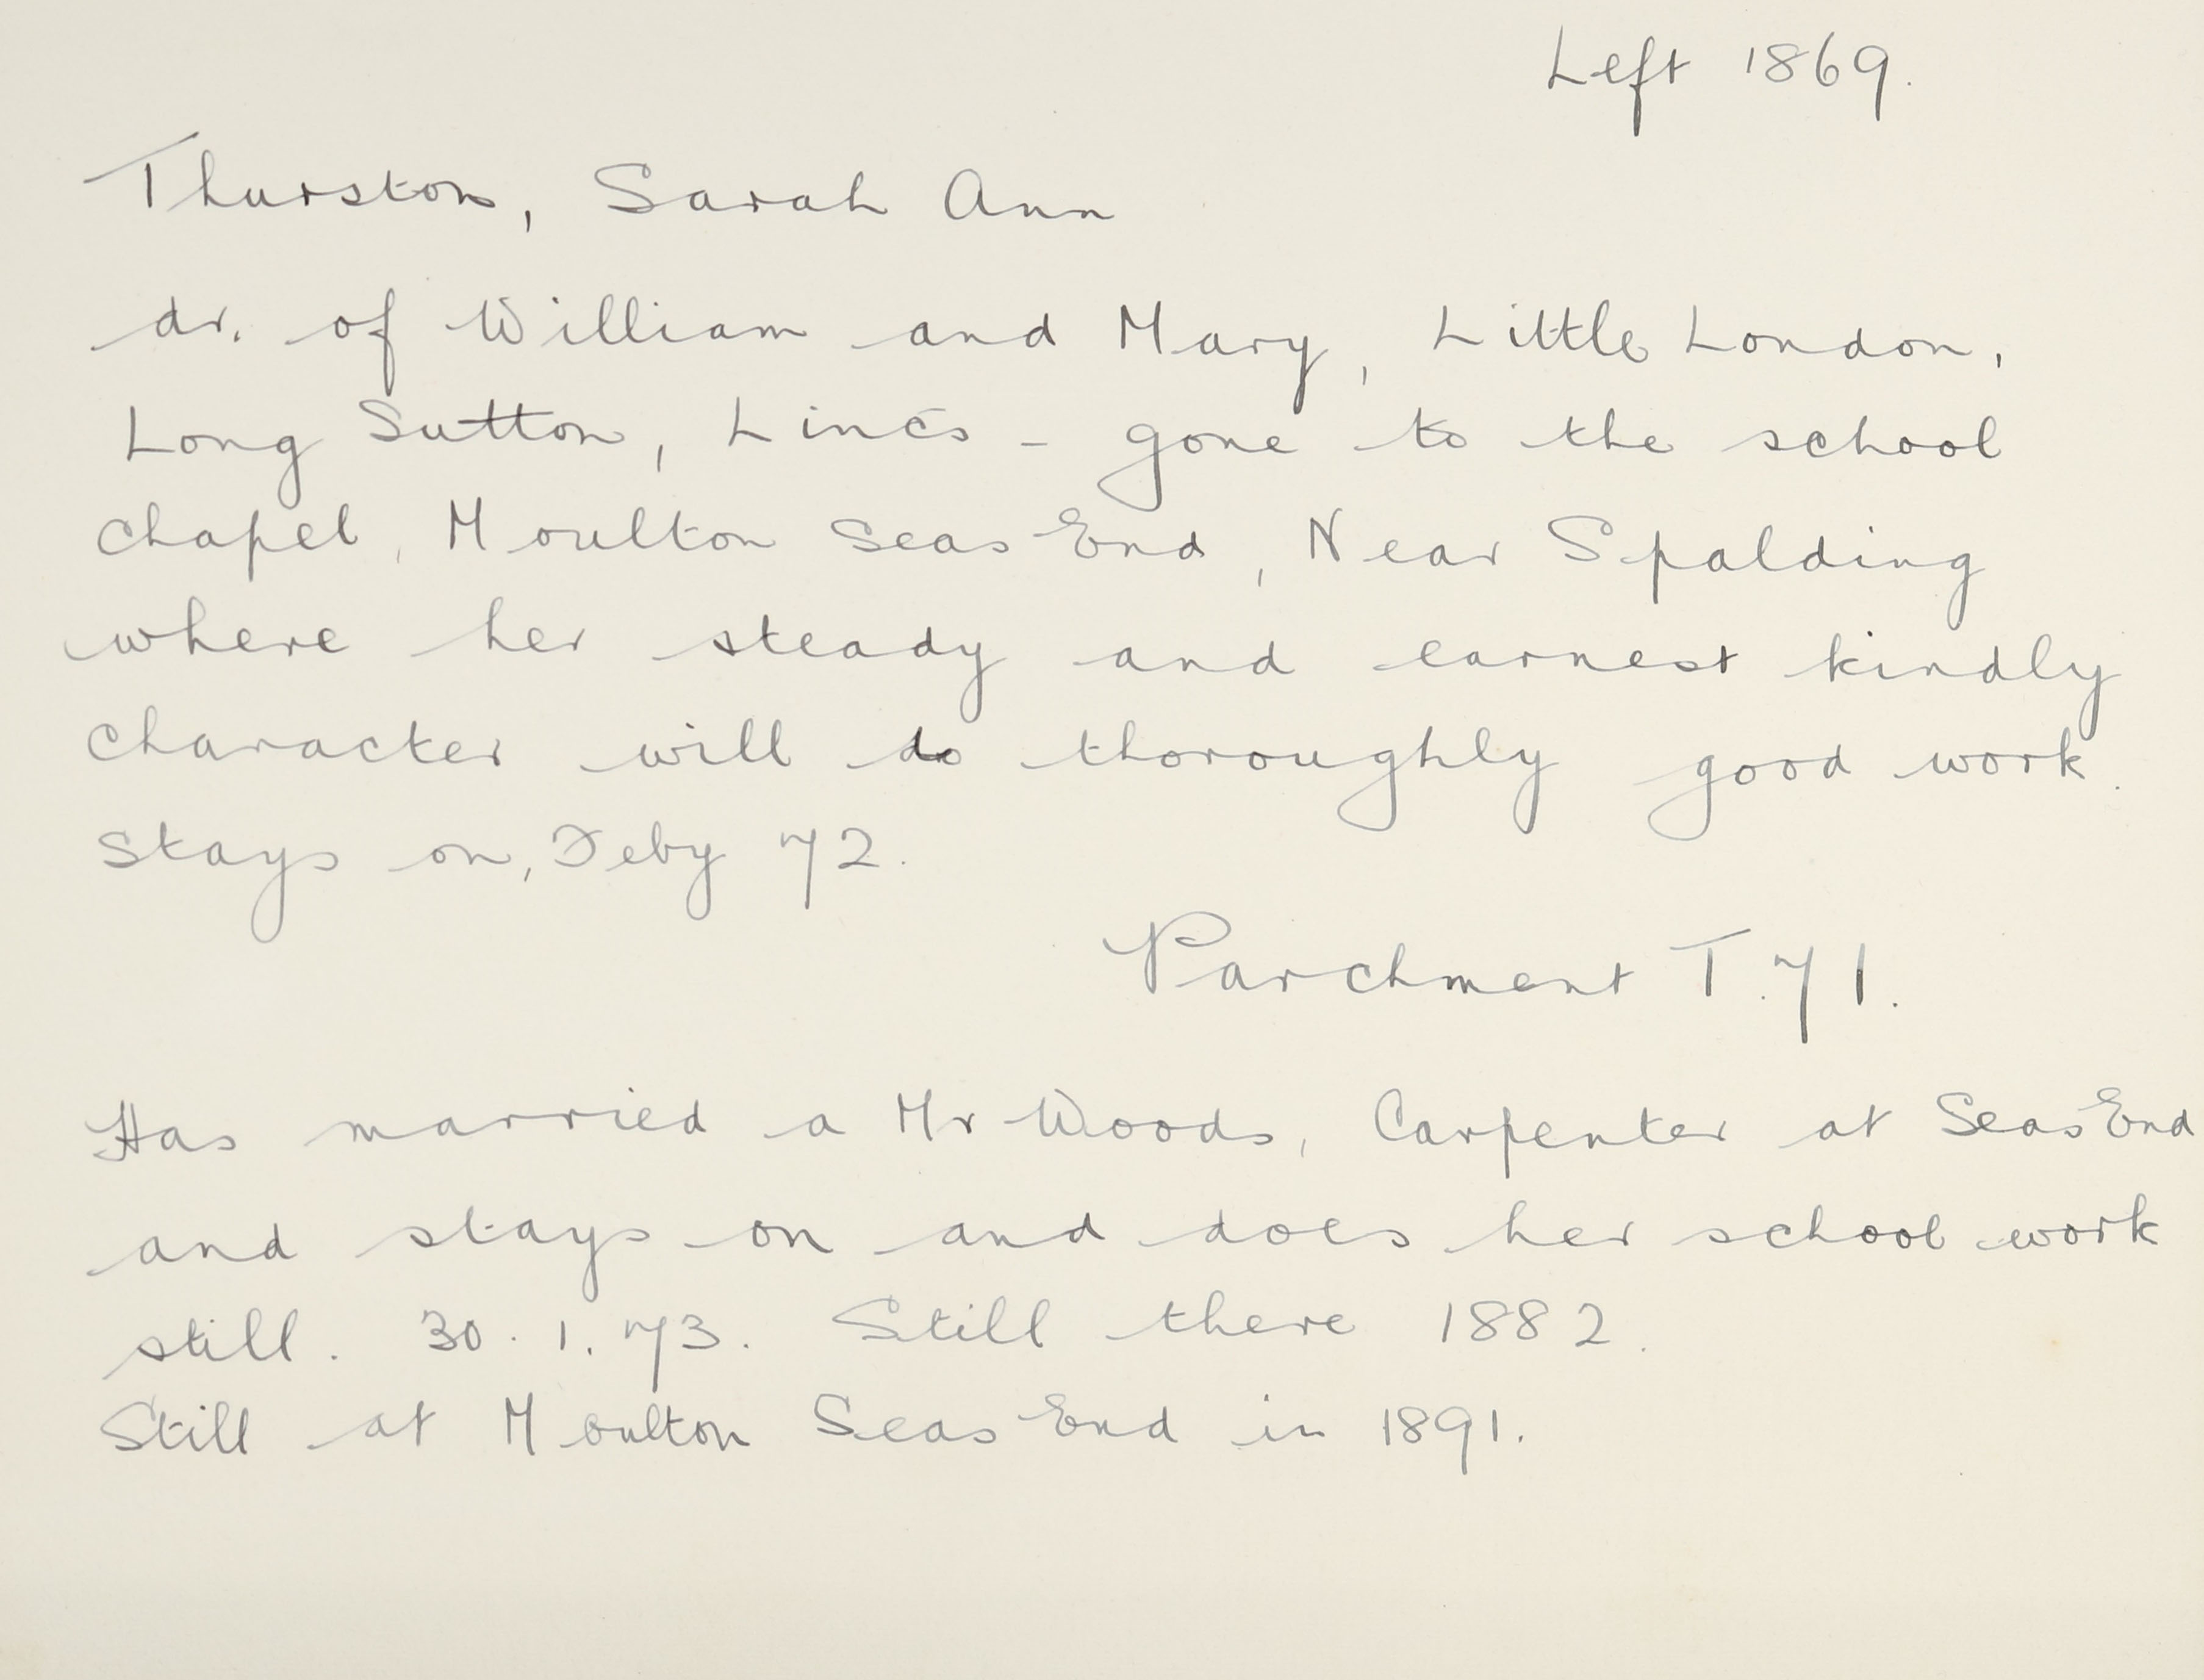 Left 1869.
Thurston, Sarah Ann
dr. of William and Mary, Little London,
Long Sutton, Lincs - gone to the school
Chapel, Moulton Seas End, Near Spalding
where her steady and earnest kindly
character will do thoroughly good work.
Stays on, Feby 72.
Parchment T.71.
Has married a Mr Woods, Carpenter at Seas End
and stays on and does her school work
still. 30.1.73. Still there 1882.
Still at Moulton Seas End in 1891.